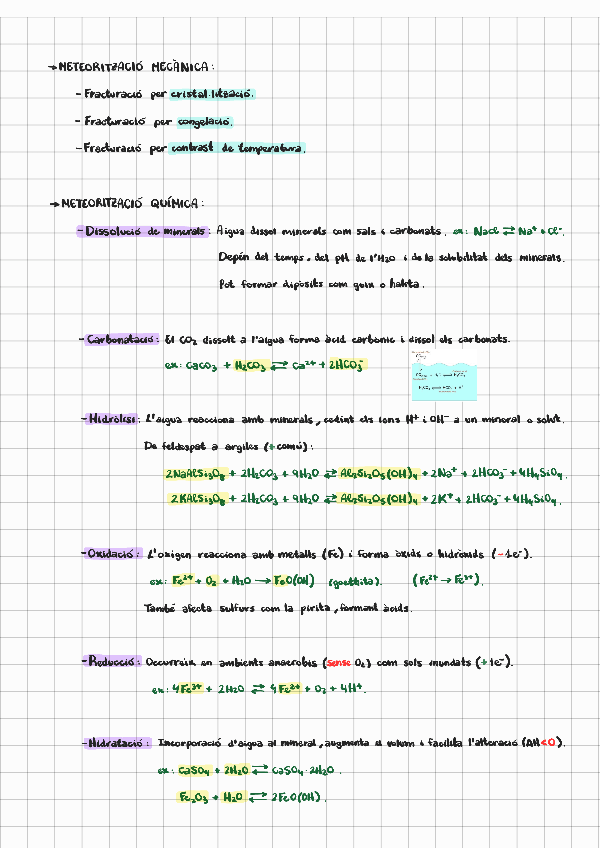 → METEORITZACIÓ MECÀNICA:
- Fracturació per cristal·lització.
- Fracturació per congelació.
- Fracturació per contrast de temperatura.
→ METEORITZACIÓ QUÍMICA:
- Dissolució de minerals: Aigua dissol minerals com sals i carbonats. ex: NaCl ⇄ Na⁺ + Cl⁻.
Depèn del temps, del pH de l'H₂O i de la solubilitat dels minerals.
Pot formar dipòsits com guix o halita.
- Carbonatació: El CO₂ dissolt a l'aigua forma àcid carbònic i dissol els carbonats.
ex: CaCO₃ + H₂CO₃ ⇄ Ca²⁺ + 2HCO₃⁻
- Hidròlisi: L'aigua reacciona amb minerals, cedint els ions H⁺ i OH⁻ a un mineral o solut.
De feldespat a argiles (+comú):
2NaAlSi₃O₈ + 2H₂CO₃ + 9H₂O ⇄ Al₂Si₂O₅(OH)₄ + 2Na⁺ + 2HCO₃⁻ + 4H₄SiO₄.
2KAlSi₃O₈ + 2H₂CO₃ + 9H₂O ⇄ Al₂Si₂O₅(OH)₄ + 2K⁺ + 2HCO₃⁻ + 4H₄SiO₄.
- Oxidació: L'oxigen reacciona amb metalls (Fe) i forma òxids o hidròxids (-1e⁻).
ex: Fe²⁺ + O₂ + H₂O → FeO(OH) (goethita). (Fe²⁺ → Fe³⁺).
També afecta sulfurs com la pirita, formant àcids.
- Reducció: Occurreix en ambients anaerobis (sense O₂) com sols inundats (+1e⁻).
ex: 4Fe³⁺ + 2H₂O ⇄ 4Fe²⁺ + O₂ + 4H⁺.
- Hidratació: Incorporació d'aigua al mineral, augmenta el volum i facilita l'alteració (ΔH<0).
ex: CaSO₄ + 2H₂O ⇄ CaSO₄·2H₂O.
Fe₂O₃ + H₂O ⇄ 2FeO(OH).